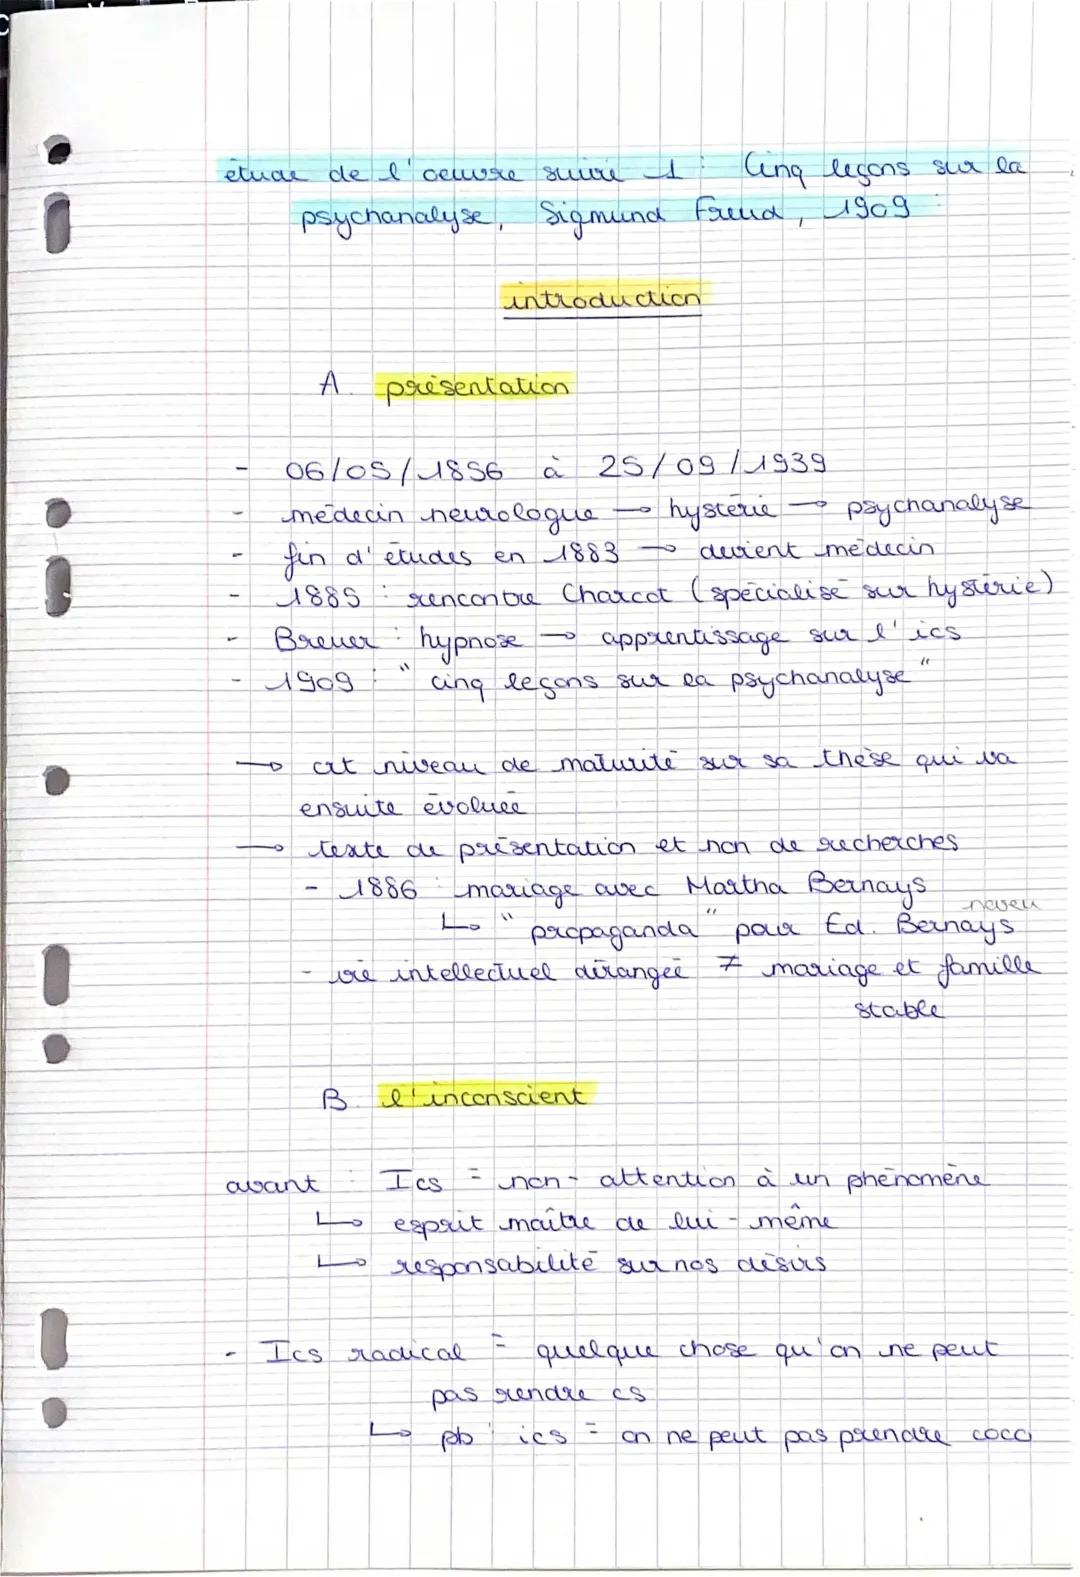 étude de l'oeuvre suivie 1 : Cinq leçons sur la
psychanalyse, Sigmund Freud, 1909 :
introduction
A. présentation
- 06/05/1856 à 25/09/1939
- médecin neurologue → hystérie → psychanalyse
- fin d'études en 1883 → devient médecin
- 1885 : rencontre Charcot (spécialisé sur hystérie)
- Breuer : hypnose → apprentissage sur l'ics
- 1909 : "cinq leçons sur la psychanalyse"
→ crt niveau de maturité sur sa thèse qui va
ensuite évoluée
→ texte de présentation et non de recherches
- 1886 : mariage avec Martha Bernays
neveu
↳ "propaganda" pour Ed. Bernays
- vie intellectuel dérangée ≠ mariage et famille
stable
B. l'inconscient
avant : Ics = non-attention à un phénomène
↳ esprit maître de lui-même
↳ responsabilité sur nos désirs
- Ics radical = quelque chose qu'on ne peut
pas rendre cs
↳ pb : ics = on ne peut pas prendre